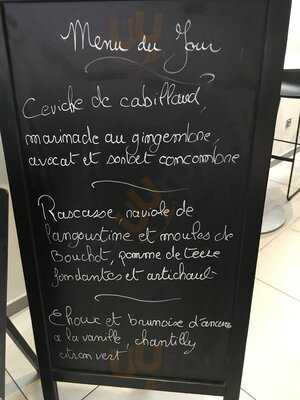 Menu du Jour
Ceviche de cabillaud,
marinade au gingembre,
avocat et sorbet concombre
Rascasse raviole de
langoustine et moules de
Bouchot, pomme de terre
fondantes et artichaut
Choux et brunoise d'ananas
a la vanille, chantilly
citron vert